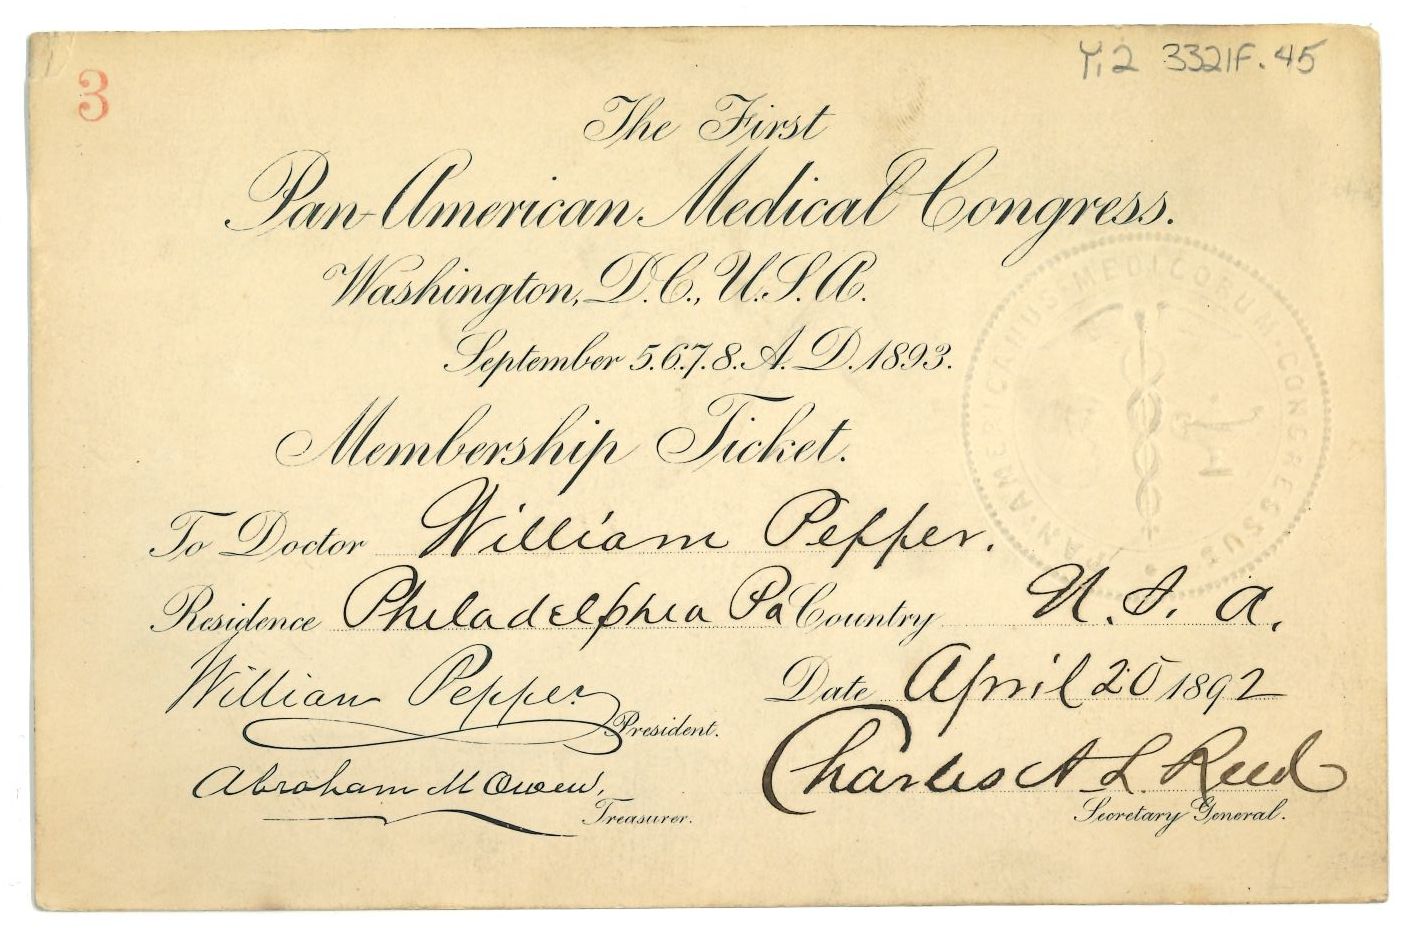 3
Y,2 3321F.45
The First
Pan-American Medical Congress.
Washington, D.C., U.S.A.
September 5.6.7.8. A.D. 1893.
Membership Ticket.
PAN·AMERICANUS MEDICORUM CONGRESSUS
To Doctor William Pepper.
Residence Philadelphia Pa Country U.S.A.
William Pepper President.
Date April 20 1892
Abraham M Owen, Treasurer.
Charles A L Reed
Secretary General.